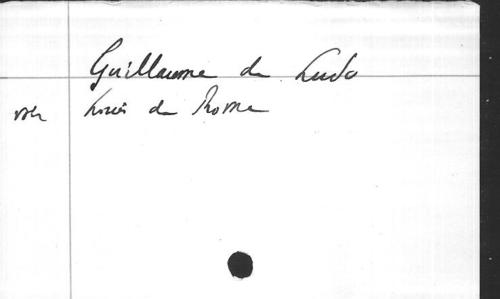 Guillaume de Ludo
voir Louis de Rome